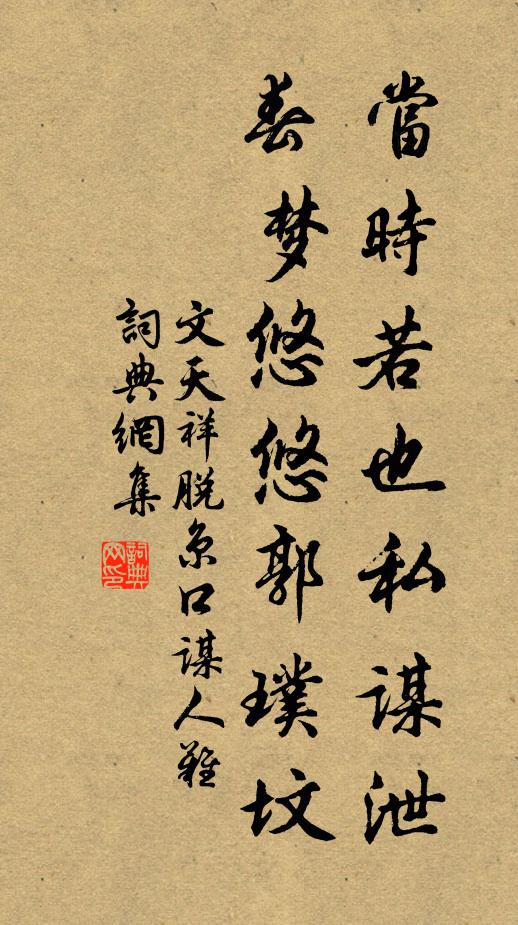 當時若也私謀泄
春梦悠悠郭璞坟
文天祥脱京口谋人難
詞典網集
詞典
网印